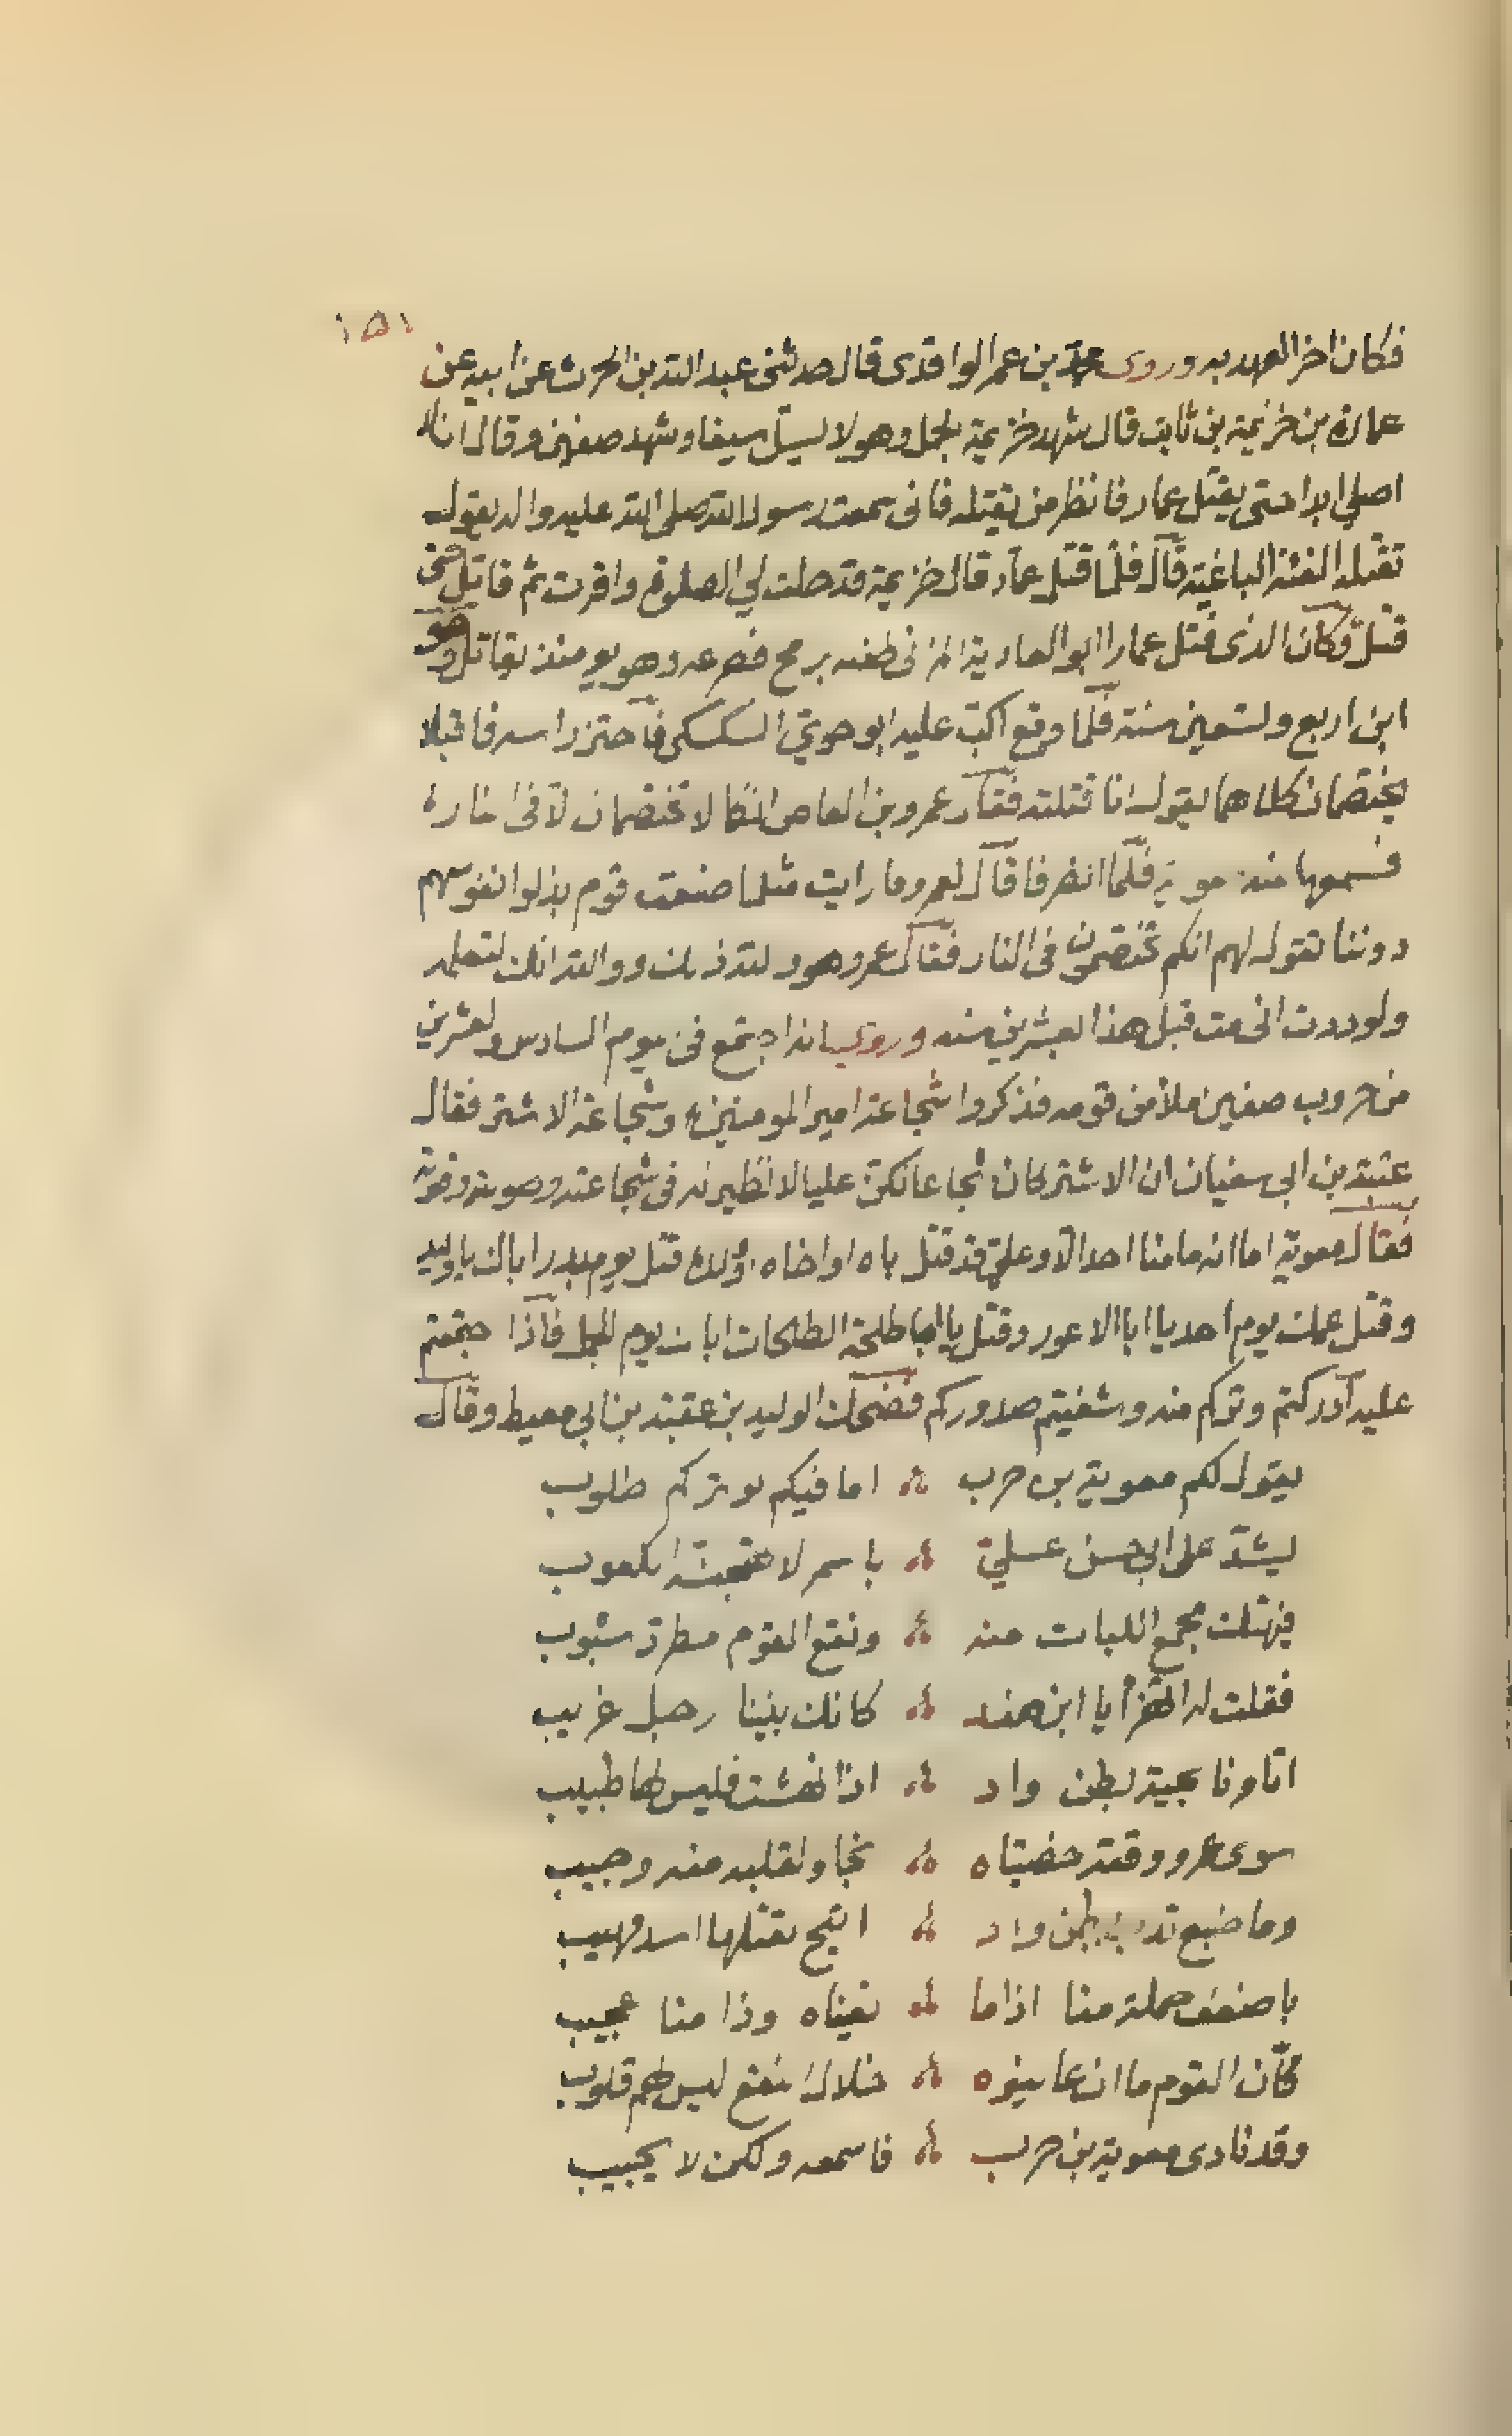 ١٥١
فكان اخر العهد به وروى محمد بن عمر الواقدى قال حدثنى عبد الله بن الحرث عن ابيه عن
عمارة بن خزيمة بن ثابت قال شهد خزيمة الجمل وهو لا يسل سيفا وشهد صفين وقال انا لا
اصلى ابدا حتى يقتل عمار فانظر من يقتله فانى سمعت رسول الله صلى الله عليه واله يقول
تقتله الفئة الباغية قال فلما قتل عمار قال خزيمة قد حلت لي الصلوة واقرت ثم قاتل حتى
قتل وكان الذى قتل عمارا ابو العادية المزنى طعنه برمح فصرعه وهو يومئذ يقاتل وهو
ابن اربع وتسعين سنة فلما وقع اكب عليه ابو حوى السكسكى فاحتز راسه فاقبلا
يختصمان كلاهما يقول انا قتلته فقال عمرو بن العاص انكما لا تختصمان الا فى النار
فسمعها منه معوية فلما انصرفا قال لعمرو ما رايت مثل ما صنعت قوم بذلوا نفوسهم
دوننا تقول لهم انكم تختصمون فى النار فقال عمرو هو والله ذلك ووالله انك لتعلمه
ولوددت انى مت قبل هذا بعشرين سنه وروى انه اجتمع فى يوم السادس والعشرين
من حروب صفين ملأ من قومه فذكروا شجاعة امير المومنين ع وشجاعة الاشتر فقال
عتبة بن ابى سفيان ان الاشتر كان شجاعا لكن عليا لا نظير له فى شجاعته وصوته وقوته
فقال معوية اما انه ما منا احد الا وعلى قد قتل اباه او اخاه او ولده قتل يوم بدر اباك يا وليد
وقتل عمك يوم احد يا ابا الاعور وقتل يا ابا طلحة الطلحات اباك يوم الجمل فاذا اجتمعتم
عليه ادركتم وتركم منه وشفيتم صدوركم فضحك الوليد بن عقبة بن ابي معيط وقال
يقول لكم معوية بن حرب اما فيكم لوتركم طلوب
يشد على ابى حسن على باسمر لا تهجنه الكعوب
فيهتك مجمع اللبات منه ونقع القوم مطرد شبوب
فقلت له اتهزأ يا ابن هند كانك بيننا رجل غريب
اتأمرنا بحية بطن واد اذا نهشت فليس لها طبيب
سوى عمرو وقته خصيتاه نجا ولقلبه منه وجيب
وما ضبع تدب ببطن واد اتيح لقتلها اسد مهيب
باضعف حملة منا اذا ما لقيناه وذا منا عجيب
كأن القوم ما ان عاينوه خلال النقع ليس لهم قلوب
وقد نادى معوية بن حرب فاسمعه ولكن لا يجيب